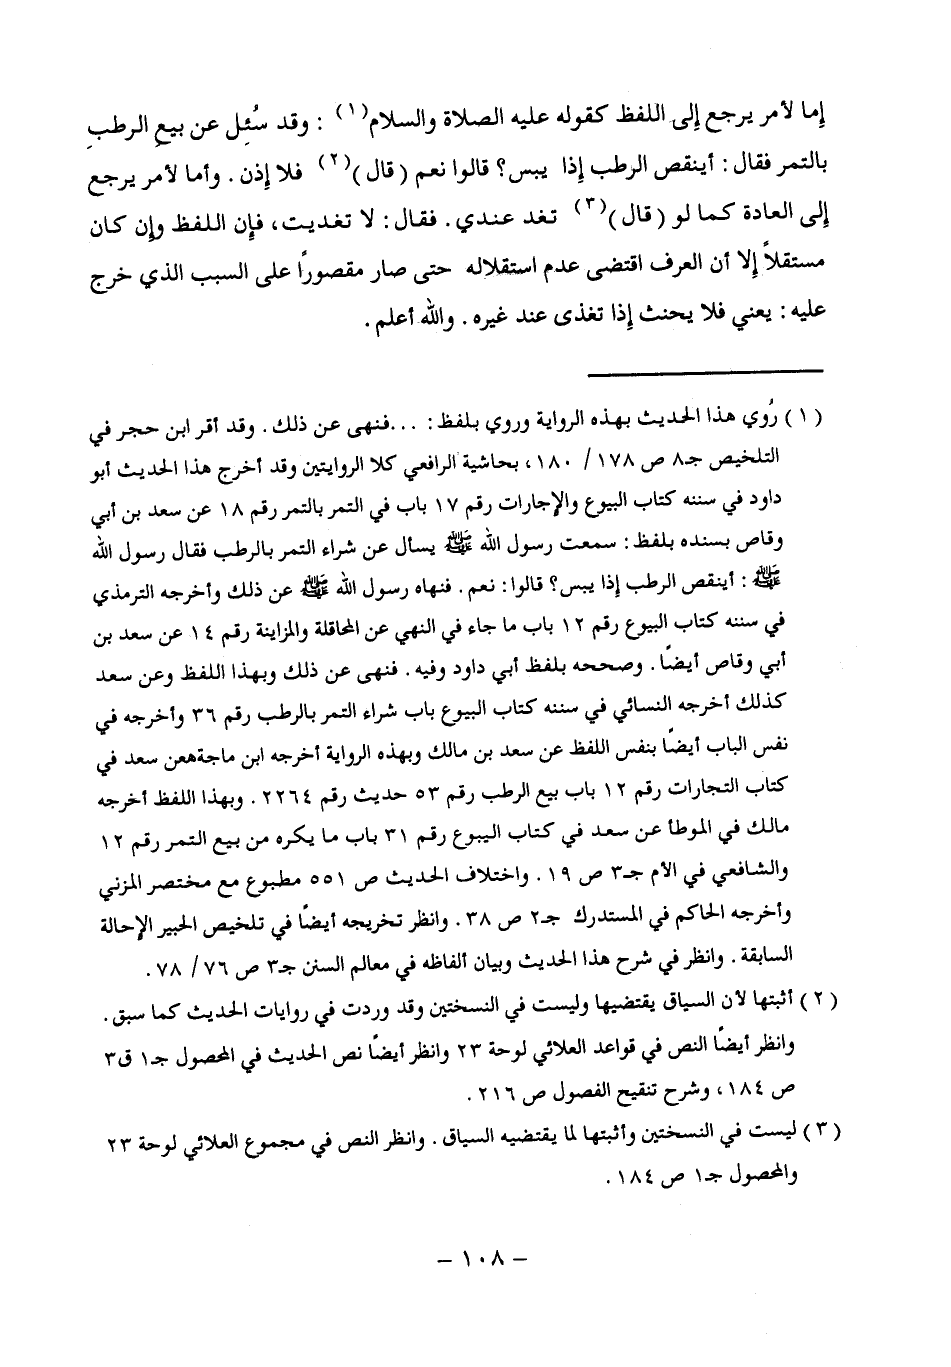 إما لأمر يرجع إلى اللفظ كقوله عليه الصلاة والسلام(١) : وقد سُئِل عن بيعِ الرطبِ
بالتمر فقال : أينقص الرطب إذا يبس؟ قالوا نعم (قال)(٢) فلا إذن . وأما لأمر يرجع
إلى العادة كما لو (قال)(٣) تغد عندي . فقال : لا تغديت ، فإن اللفظ وإن كان
مستقلاً إلا أن العرف اقتضى عدم استقلاله حتى صار مقصوراً على السبب الذي خرج
عليه : يعني فلا يحنث إذا تغذى عند غيره . والله أعلم .
(١) رُوي هذا الحديث بهذه الرواية وروي بلفظ : ... فنهى عن ذلك . وقد أقر ابن حجر في
التلخيص جـ٨ ص ١٧٨ / ١٨٠ ، بحاشية الرافعي كلا الروايتين وقد أخرج هذا الحديث أبو
داود في سننه كتاب البيوع والإجارات رقم ١٧ باب في التمر بالتمر رقم ١٨ عن سعد بن أبي
وقاص بسنده بلفظ : سمعت رسول الله ﷺ يسأل عن شراء التمر بالرطب فقال رسول الله
ﷺ : أينقص الرطب إذا يبس؟ قالوا : نعم . فنهاه رسول الله ﷺ عن ذلك وأخرجه الترمذي
في سننه كتاب البيوع رقم ١٢ باب ما جاء في النهي عن المحاقلة والمزاينة رقم ١٤ عن سعد بن
أبي وقاص أيضاً . وصححه بلفظ أبي داود وفيه . فنهى عن ذلك وبهذا اللفظ وعن سعد
كذلك أخرجه النسائي في سننه كتاب البيوع باب شراء التمر بالرطب رقم ٣٦ وأخرجه في
نفس الباب أيضاً بنفس اللفظ عن سعد بن مالك وبهذه الرواية أخرجه ابن ماجةهعن سعد في
كتاب التجارات رقم ١٢ باب بيع الرطب رقم ٥٣ حديث رقم ٢٢٦٤ . وبهذا اللفظ أخرجه
مالك في الموطأ عن سعد في كتاب اليبوع رقم ٣١ باب ما يكره من بيع التمر رقم ١٢
والشافعي في الأم جـ٣ ص ١٩ . واختلاف الحديث ص ٥٥١ مطبوع مع مختصر المزني
وأخرجه الحاكم في المستدرك جـ٢ ص ٣٨ . وانظر تخريجه أيضاً في تلخيص الحبير الإحالة
السابقة . وانظر في شرح هذا الحديث وبيان ألفاظه في معالم السنن جـ٣ ص ٧٦ / ٧٨ .
(٢) أثبتها لأن السياق يقتضيها وليست في النسختين وقد وردت في روايات الحديث كما سبق .
وانظر أيضاً النص في قواعد العلائي لوحة ٢٣ وانظر أيضاً نص الحديث في المحصول جـ١ ق٣
ص ١٨٤ ، وشرح تنقيح الفصول ص ٢١٦ .
(٣) ليست في النسختين وأثبتها لما يقتضيه السياق . وانظر النص في مجموع العلائي لوحة ٢٣
والمحصول جـ١ ص ١٨٤ .
– ١٠٨ –